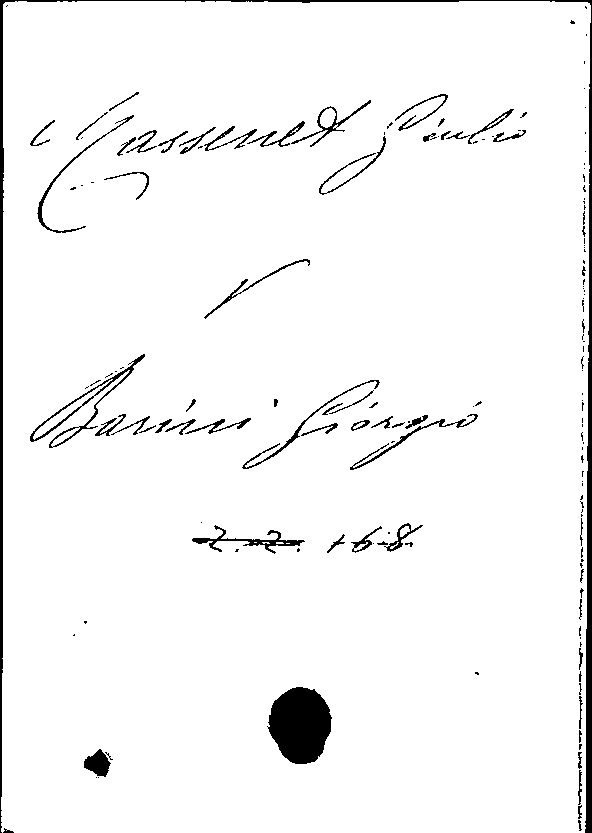 Massenet Giulio
V
Barini Giorgio
2. 2. +68